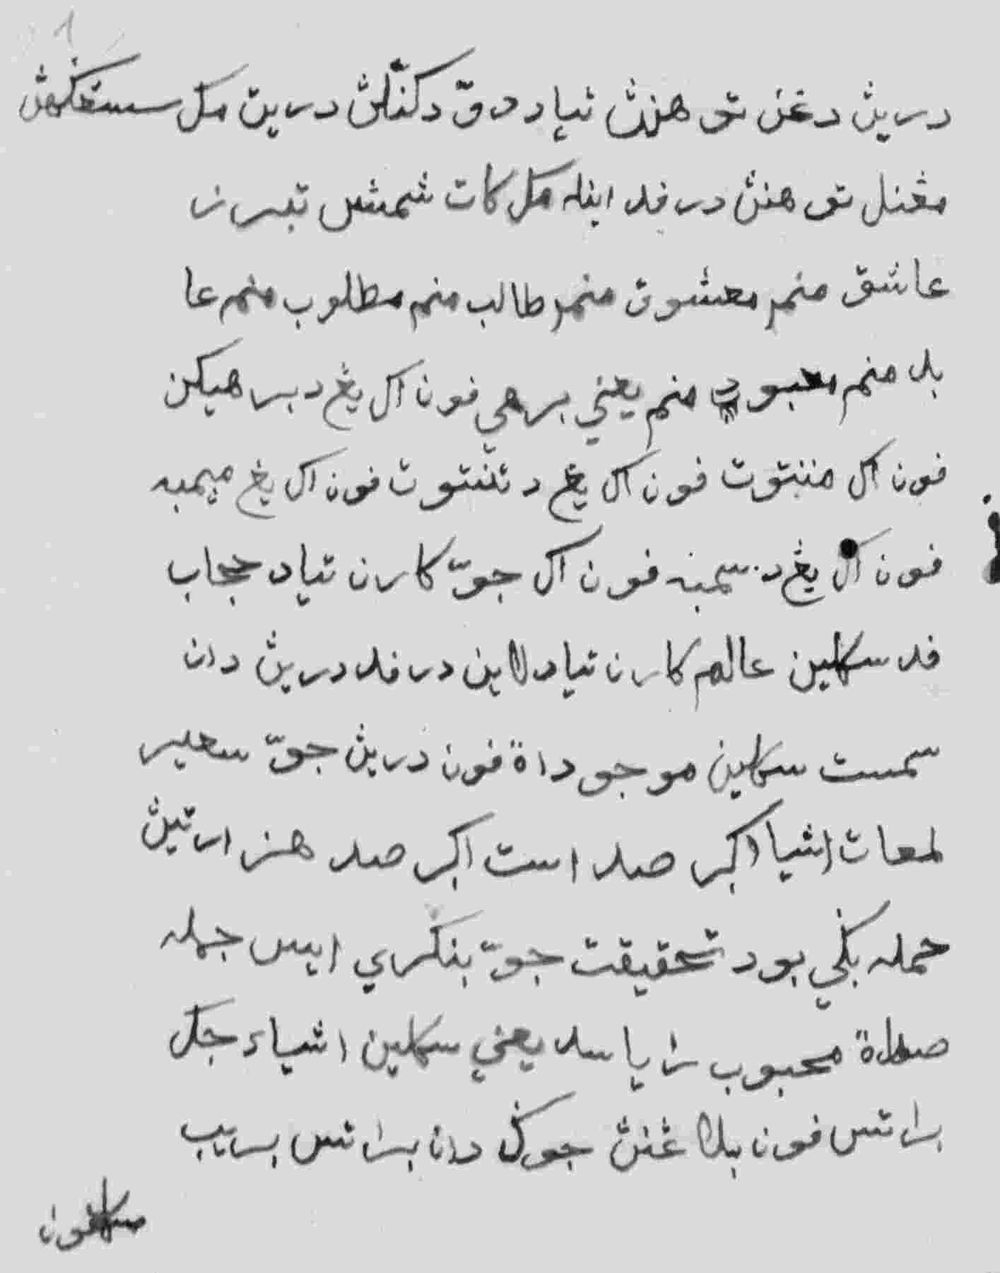 دريڽ دغن تو هنڽ تياد دوّ دكنلڽ دريڽ مك سستڠكهڽ
مڠنل تو هنڽ درفد اينله مك كات شمش تبريز
عاشق منم معشوق منم طالب منم مطلوب منم عا
بد منم معبود منم يعني برهي فون اك يڠ دبرهيكن
فون اك مننتوت فون اك يڠ دتنتوت فون اك يڠ ميمبه
فون اك يڠ دسمبه فون اك جوّ كارن تياد حجاب
فد سكلين عالم كارن تياد لاين درفد دريڽ دان
سمست سكلين موجوداة فون دريڽ جوّ سعير
لمعات اشيا اكر صد است اكر صد هزار تيڽ
جمله يكي بود تحقيقت جوّ بنكري ايس جمله
صلاة محبوب را يا سد يعني سكلين اشياء جك
براتس فون بلاڠنڽ جوك دان براتس بريب
سكلفون